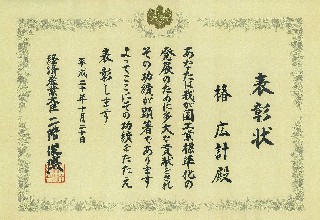 表彰状
椿 広計 殿
あなたは我が国工業標準化の
発展のために多大な貢献をされ
その功績が顕著であります
よってここにその功績をたたえ
表彰します
平成二十年十月二十日
経済産業大臣 二階俊博